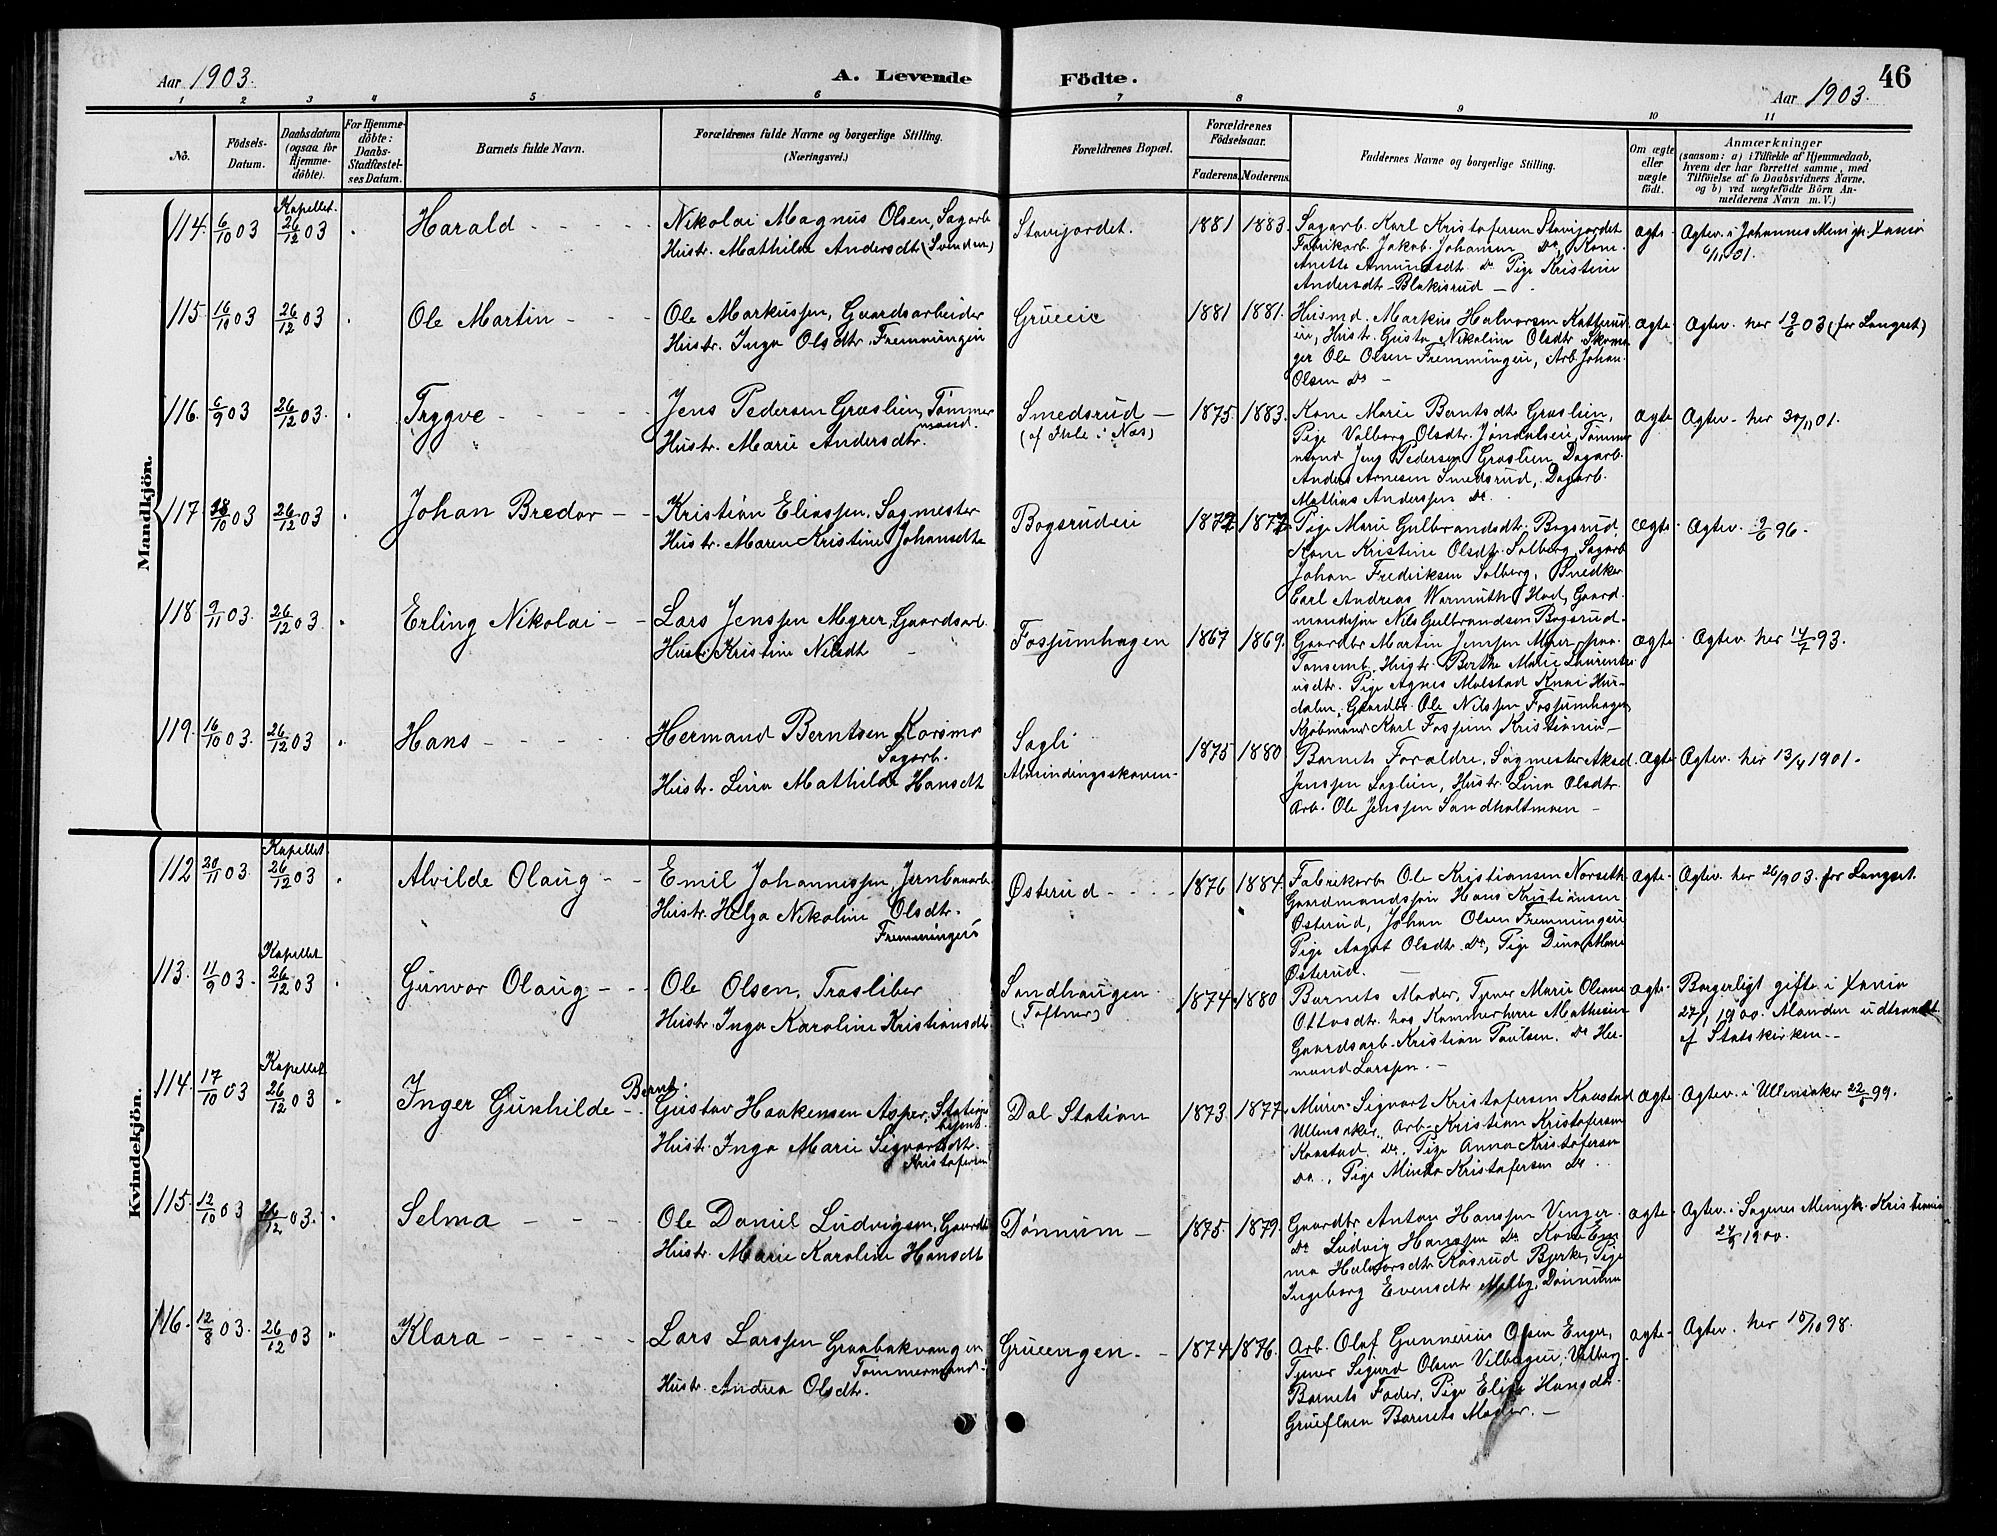 Aar 1903.
A. Levende
Födte.
46
Aar 1903.
1 2 3 4 5 6 7 8 9 10 11
No.
Födsels-Datum.
Daabsdatum (ogsaa for Hjemme-döbte).
For Hjemme-döbte: Daabs-Stadfæstel-ses Datum.
Barnets fulde Navn.
Forældrenes fulde Navne og borgerlige Stilling.
(Næringsvei.)
Forældrenes Bopæl.
Forældrenes Födselsaar.
Faderens. Moderens.
Faddernes Navne og borgerlige Stilling.
Om ægte eller uægte födt.
Anmærkninger
(saasom: a) i Tilfælde af Hjemmedaab,
hvem der har forrettet samme, med
Tilföielse af to Daabsvidners Navne,
og b) ved uægtefödte Börn An-
melderens Navn m. V.)
Mandkjön.
114. 6/10 03 Kapellet. 26/12 03 Harald
Nikolai Magnus Olsen, Sagarb.
Hustr. Mathilde Andersdtr (Svenden)
Stavijordet. 1881 1883.
Sagarb. Karl Kristofersen Stavijordet
Fabrikarb. Jakob Johansen Do, Kone
Anette Amundsdtr. Do Pige Kristine
Andersdtr Blakisrud
ægte Ægtev. i Johannes Menigh. Xania
6/11 01.
115. 16/10 03 26/12 03 Ole Martin
Ole Markussen, Gaardsarbeider
Hustr. Inga Olsdtr. Fremmingeie
Grueeie 1881 1881.
Husmd. Markus Halvorsen Katterud
eie, Hustr. Gusta Nikoline Olsdtr. Skoma
ger Ole Olsen Fremmingeie, Arb. Johan
Olsen Do
ægte Ægtev. her 19/6 03 (for Langset)
116. 6/9 03 26/12 03. Trygve
Jens Pedersen Græslien, Tømmer
mand.
Hustr. Marie Andersdtr.
Smedsrud
(af Ihle i Næs)
1875. 1883.
Kone Marie Berntsdtr Græslien,
Pige Valborg Olsdtr. Jøndalseie, Tømmer
mand Jens Pedersen Græslien, Dagarb.
Anders Arnesen Smedsrud, Dagarb.
Mathias Anderssen Do.
ægte Ægtev. her 30/11 01.
117. 18/10 03 26/12 03 Johan Bredor
Kristian Eliassen, Sagmester
Hustr. Maren Kristine Johansdtr
Bogsrudeie 1872 1877.
Pige Marie Gulbrandsdtr. Bogsrud,
Kone Kristine Olsdtr. Solberg, Sagarb.
Johan Fredriksen Solberg, Snedker
Carl Andreas Warmuth Hod, Gaard
mandssøn Nils Gulbrandsen Bogsrud.
ægte Ægtev. 9/6 96.
118. 9/11 03 26/12 03. Erling Nikolai
Lars Jenssen Myrer, Gaardsarb.
Hustr. Kristine Nilsdtr
Fosjumhagen 1867 1869.
Gaardbr Martin Jenssen Myrer paa
Tonsemb. Hustr. Berthe Marie Laurentse
usdtr. Pige Agnes Molstad Knai Hur-
dalen, Gaardbr. Ole Nilssen Fosjumhagen
Kjøbmand Karl Fosjum Kristiania
ægte Ægtev. her 14/7 93.
119. 16/10 03. 26/12 03 Hans
Hermand Berntsen Korsmo
Sagarb.
Hustr. Lina Mathilde Hansdtr
Sagli
Almindingsskoven
1875 1880
Barnets Forældre, Sagmester Aksel
Jenssen Saglien, Hustr. Lina Olsdtr.
Arb. Ole Jenssen Sandholtmoen
ægte Ægtev. her 13/4 1901.
Kvindekjön.
112 20/11 03. Kapellet 26/12 03 Alvilde Olaug
Emil Johannessen, Jernbanearb
Hustr. Helga Nikoline Olsdtr.
Fremmingeie
Østerud 1876 1884.
Fabrikarb Ole Kristiansen Norseth
Gaardmandssøn Hans Kristiansen
Østerud, Johan Olsen Fremmingeie
Pige Aagot Olsdtr. Do, Pige Dina Marie
Østerud.
ægte Ægtev. her 26/9 03. for Langset.
113. 11/9 03. Kapellet 26/12 03 Gunvor Olaug
Ole Olsen, Træsliber
Hustr. Inga Karoline Kristiansdtr
Sandhaugen
(Toftner)
1874 1880
Barnets Moder, Tjener Marie Oleane
Ottosdtr. hos Kammerherre Mathiesen
Gaardsarb. Kristian Paulsen. Do Her-
mand Larssen.
ægte Borgerligt gifte i Xania
27/1 1900. Manden udtraadt
af Statskirken.
114. 17/10 03 Kapellet 26/12 03 Inger Gunhilde
Bernt
Gustav Haakensen Asper, Stations
betjent.
Hustr. Inga Marie Sigvartsdtr.
Kristofersen
Dal Station 1873. 1877.
Murer Sigvart Kristofersen Kaastad
Ullensaker, Arb. Kristian Kristofersen
Kaastad, Do, Pige Anna Kristofersen
Do, Pige Minda Kristofersen Do.
ægte Ægtev. i Ullensaker 22/6 99.
115. 12/10 03 26/12 03. Selma
Ole Daniel Ludvigsen, Gaardbr
Hustr. Marie Karoline Hansdtr
Dønnum 1875. 1879.
Gaardbr Anton Hanssen Vinger.
Do Ludvig Hanssen Do Kone Em
ma Halvorsdtr Kosrud Bjerke, Pige
Ingeborg Evensdtr. Malby, Dønnum
ægte Ægtev. i Sagenes Menigh. Kristiania
24/9 1900.
116. 12/8 03. 26/12 03 Klara
Lars Larssen Graabakvangen
Tømmermand
Hustr. Andrea Olsdtr.
Grueengen. 1874. 1876.
Arb. Olaf Gunnerius Olsen Enger,
Tjener Sigurd Olsen Vilbergeie, Valborg
Barnets Fader, Pige Elise Hansdtr.
Grueflaen Barnets Moder.
ægte Ægtev. her 15/10 98.